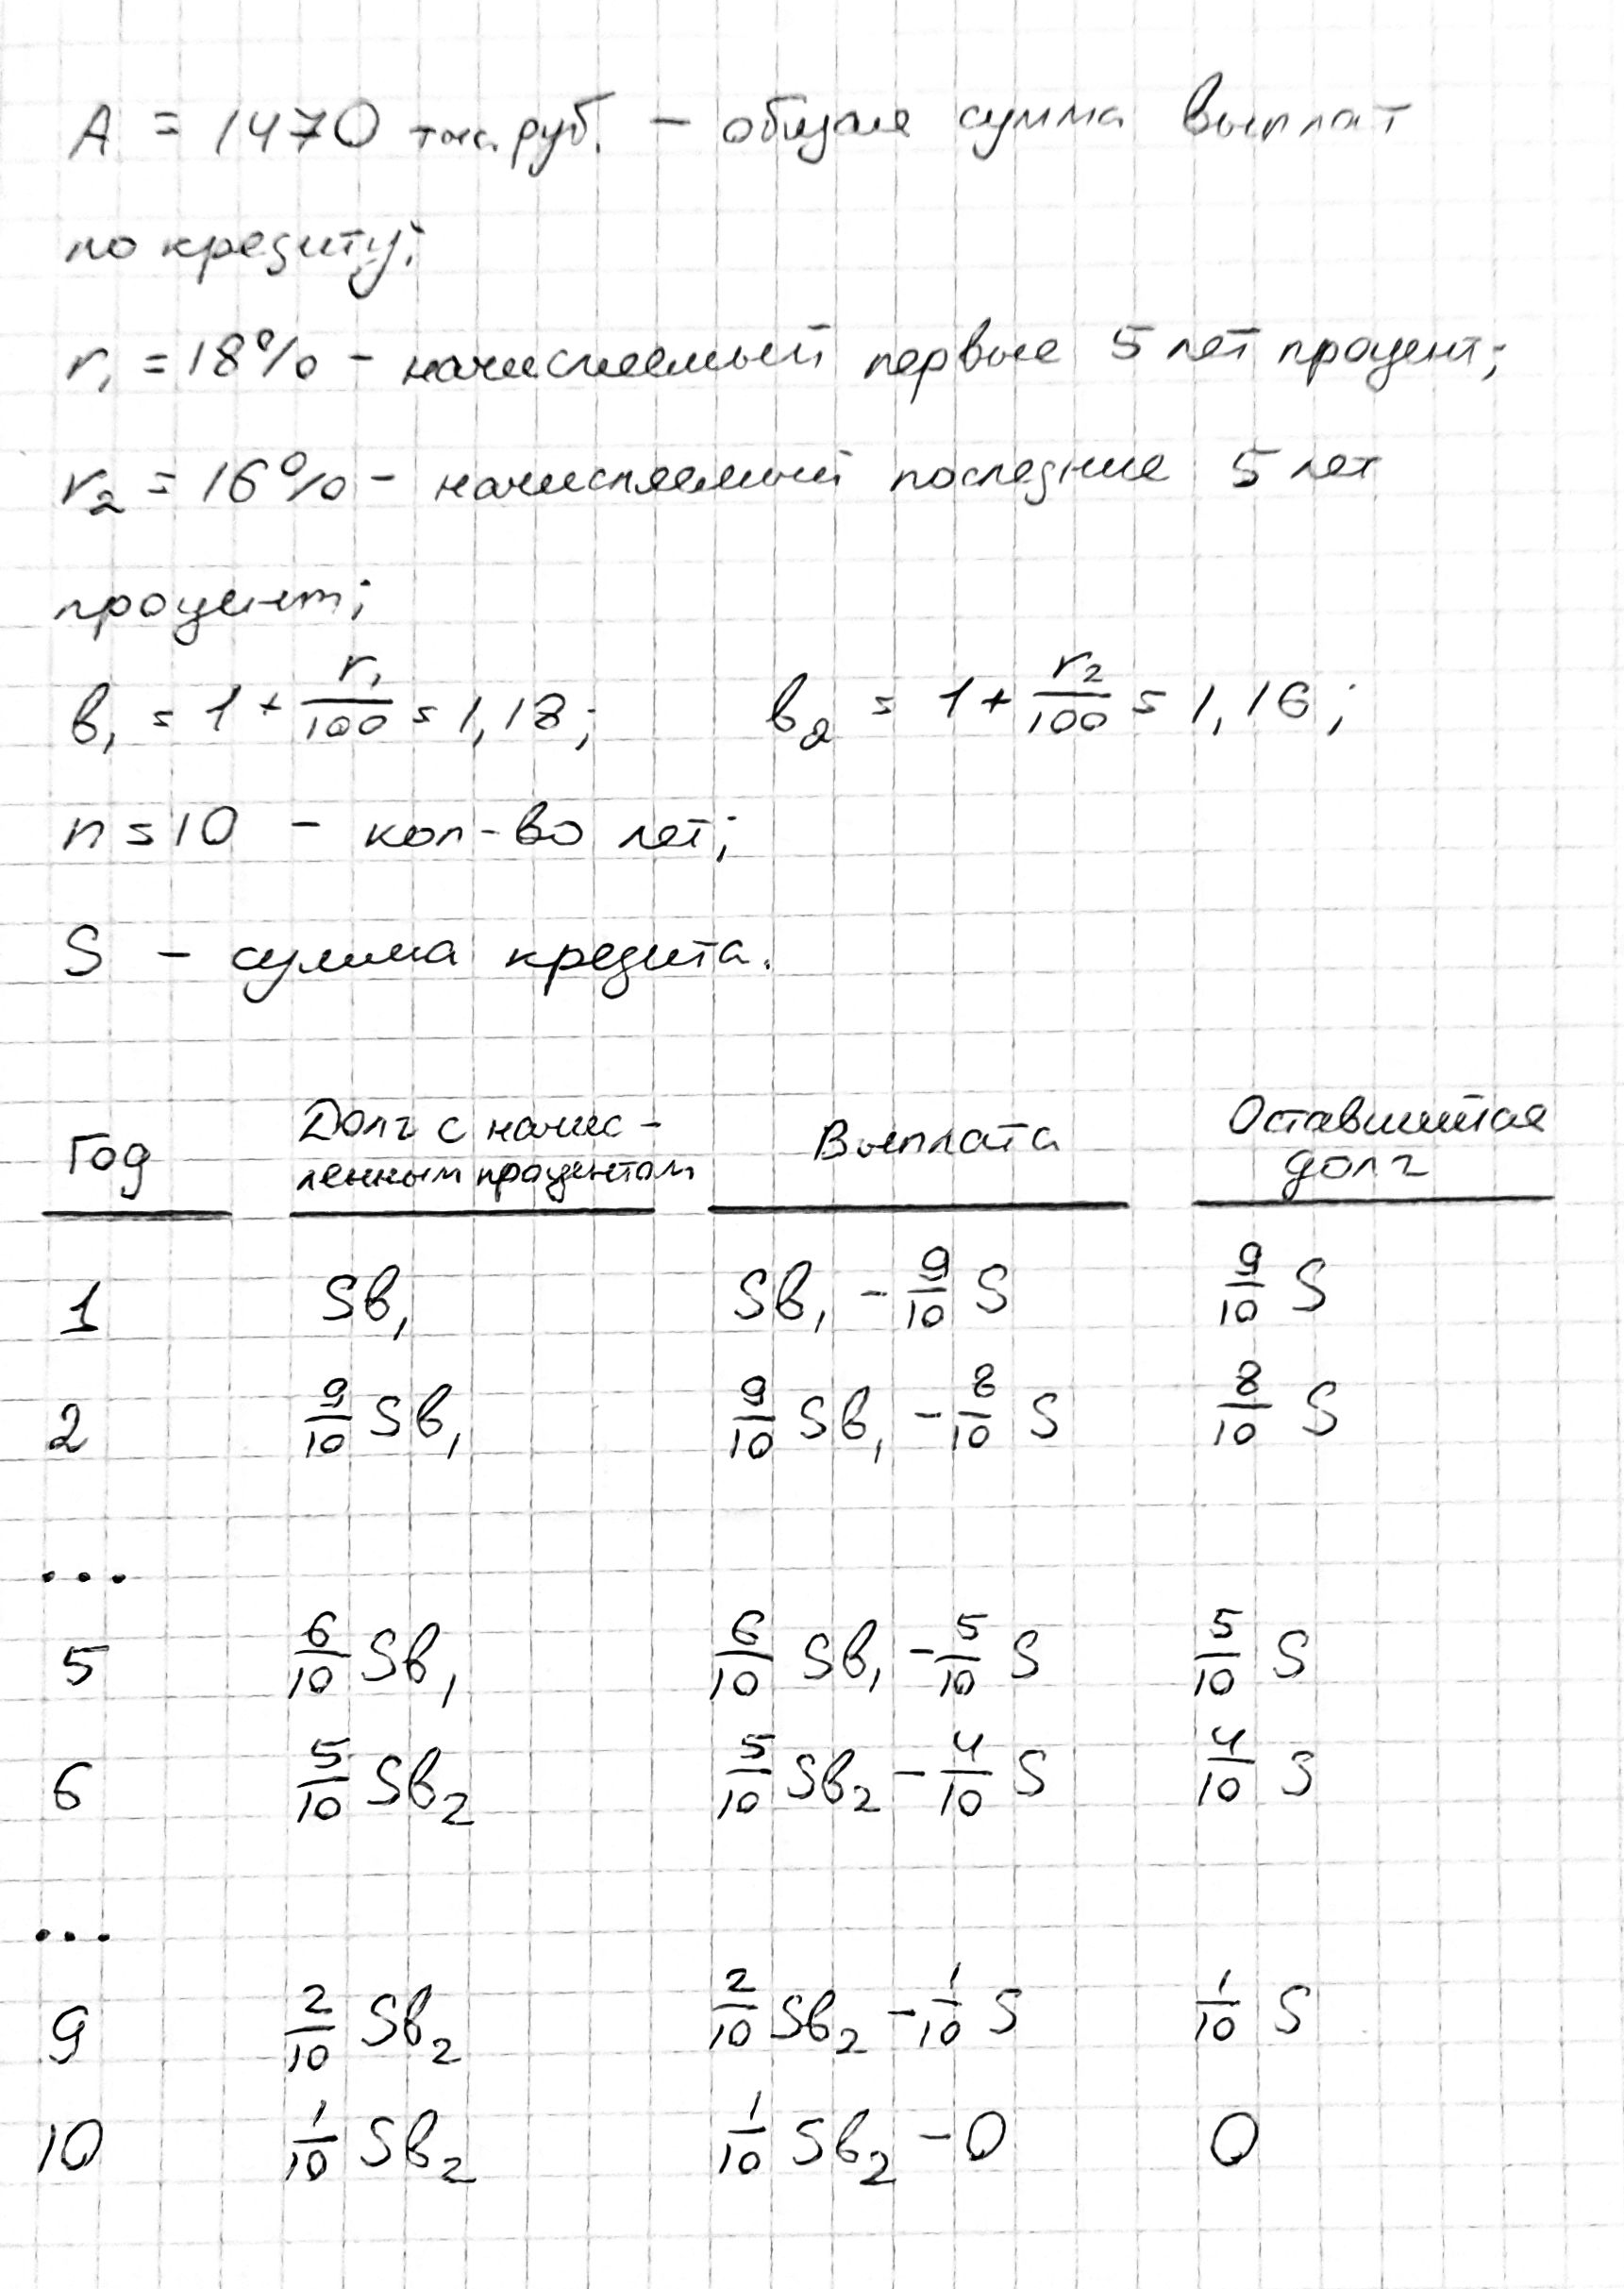 A = 1470 тыс. руб. – общая сумма выплат
по кредиту;
r₁ = 18% – начисляемый первые 5 лет процент;
r₂ = 16% – начисляемый последние 5 лет
процент;
b₁ = 1 + r₁/100 = 1,18; b₂ = 1 + r₂/100 = 1,16;
n = 10 – кол-во лет;
S – сумма кредита.
Год Долг с начис- Выплата Оставшийся
ленным процентом долг
1 Sb₁ Sb₁ – 9/10 S 9/10 S
2 9/10 Sb₁ 9/10 Sb₁ – 8/10 S 8/10 S
...
5 6/10 Sb₁ 6/10 Sb₁ – 5/10 S 5/10 S
6 5/10 Sb₂ 5/10 Sb₂ – 4/10 S 4/10 S
...
9 2/10 Sb₂ 2/10 Sb₂ – 1/10 S 1/10 S
10 1/10 Sb₂ 1/10 Sb₂ – 0 0